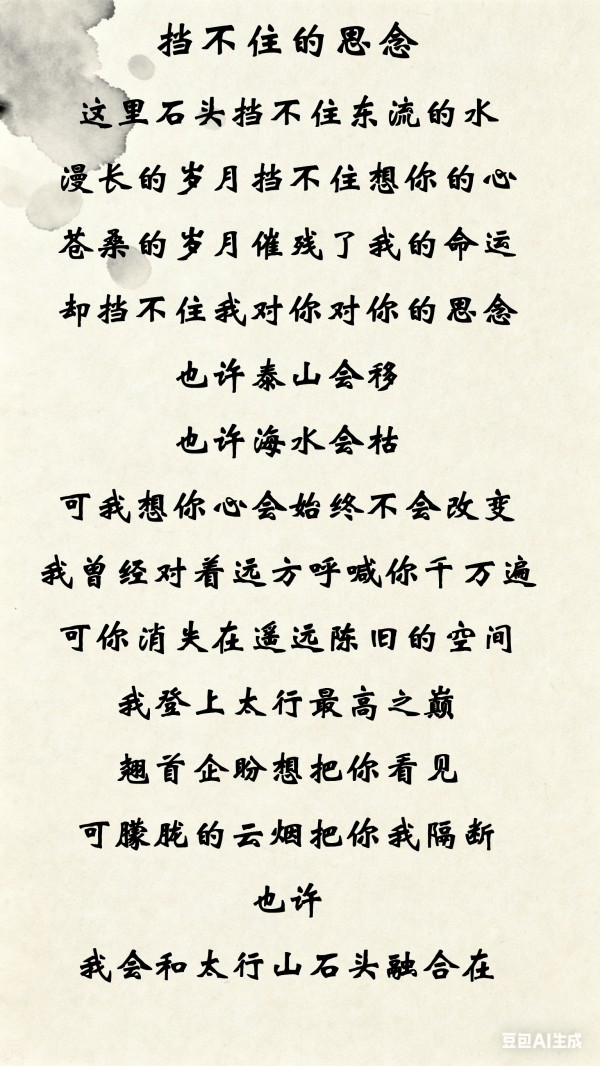 挡不住的思念
这里石头挡不住东流的水
漫长的岁月挡不住想你的心
苍桑的岁月催残了我的命运
却挡不住我对你对你的思念
也许泰山会移
也许海水会枯
可我想你心会始终不会改变
我曾经对着远方呼喊你千万遍
可你消失在遥远陈旧的空间
我登上太行最高之巅
翘首企盼想把你看见
可朦胧的云烟把你我隔断
也许
我会和太行山石头融合在
豆包AI生成